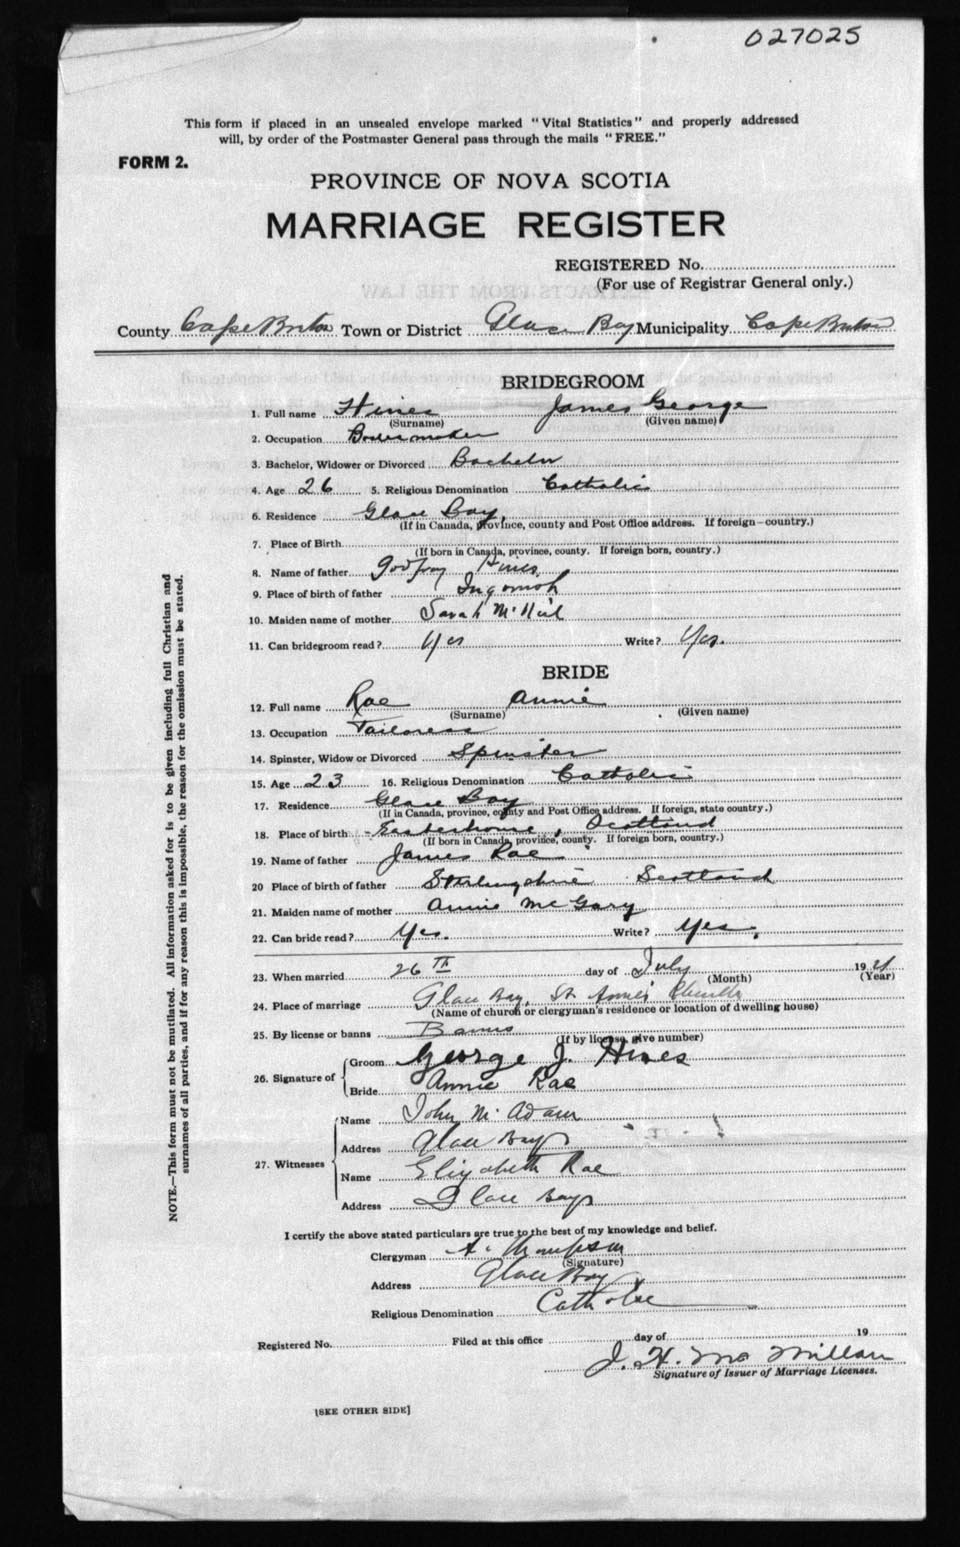 027025
This form if placed in an unsealed envelope marked "Vital Statistics" and properly addressed
will, by order of the Postmaster General pass through the mails "FREE."
FORM 2.
PROVINCE OF NOVA SCOTIA
MARRIAGE REGISTER
REGISTERED No.
(For use of Registrar General only.)
County Cape Breton Town or District Glace Bay Municipality Cape Breton
BRIDEGROOM
1. Full name Hines James George
(Surname) (Given name)
2. Occupation Boilermaker
3. Bachelor, Widower or Divorced Bachelor
4. Age 26 5. Religious Denomination Catholic
6. Residence Glace Bay,
(If in Canada, province, county and Post Office address. If foreign—country.)
7. Place of Birth
(If born in Canada, province, county. If foreign born, country.)
8. Name of father Godfrey Hines
9. Place of birth of father Ingonish
10. Maiden name of mother Sarah McNeil
11. Can bridegroom read? Yes Write? Yes.
BRIDE
12. Full name Rae Annie
(Surname) (Given name)
13. Occupation Tailoress
14. Spinster, Widow or Divorced Spinster
15. Age 23 16. Religious Denomination Catholic
17. Residence Glace Bay
(If in Canada, province, county and Post Office address. If foreign, state country.)
18. Place of birth Easterhouse, Scotland
(If born in Canada, province, county. If foreign born, country.)
19. Name of father James Rae
20 Place of birth of father Sterlingshire Scotland
21. Maiden name of mother Annie McGary
22. Can bride read? Yes. Write? Yes,
23. When married 26TH day of July 1921
(Month) (Year)
24. Place of marriage Glace Bay, St Anne's Church
(Name of church or clergyman's residence or location of dwelling house)
25. By license or banns Banns
(If by license, give number)
26. Signature of
Groom George J. Hines
Bride Annie Rae
27. Witnesses
Name John McAdam
Address Glace Bay
Name Elizabeth Rae
Address Glace Bay
I certify the above stated particulars are true to the best of my knowledge and belief.
Clergyman A. Thompson
(Signature)
Address Glace Bay
Religious Denomination Catholic
Registered No. Filed at this office day of 19
J. H. McMillan
Signature of Issuer of Marriage Licenses.
[SEE OTHER SIDE]
NOTE.—This form must not be mutilated. All information asked for is to be given including full Christian and
surnames of all parties, and if for any reason this is impossible, the reason for the omission must be stated.